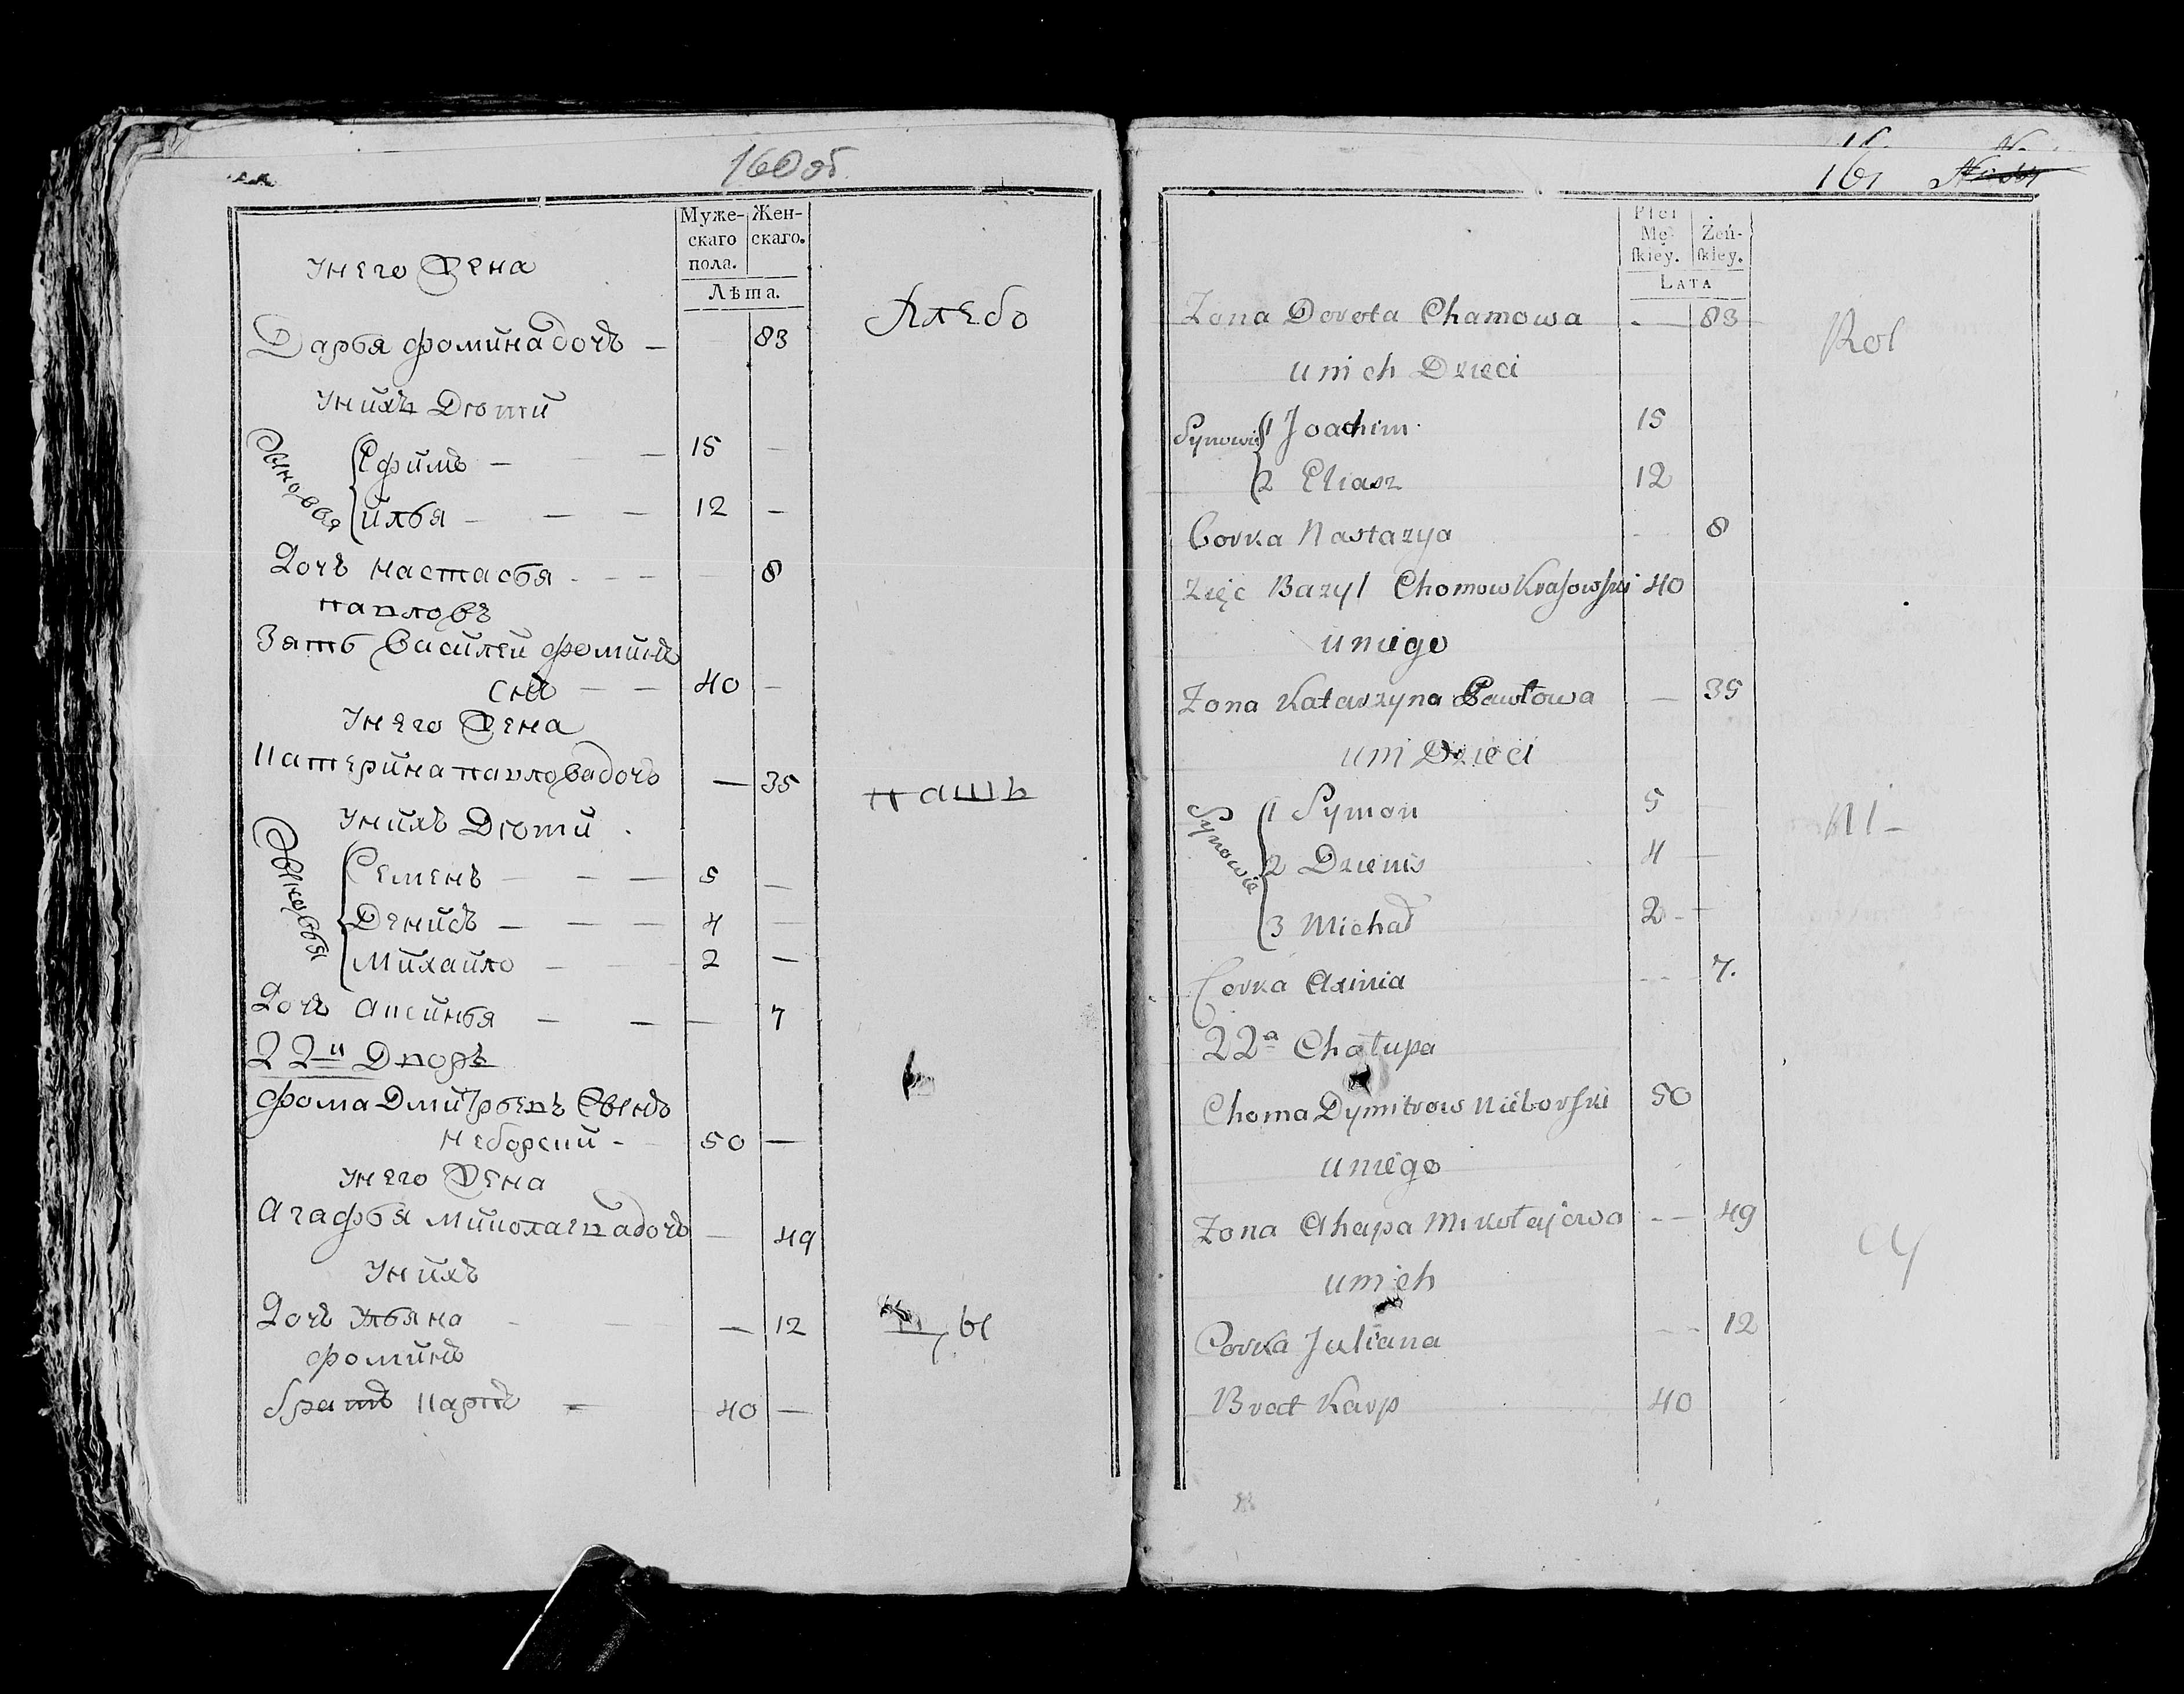 160 об.
Муже-
скаго
пола.
Жен-
скаго.
Лѣта.
У него Жена
Дарья фомина дочь — 83
Хлебо
У нихъ Дѣти
Сыновья
Ефимъ — — 15 —
Илья — — — 12 —
Дочь настасья — — — 8
павловъ
Зять василеи фоминъ
снъ — — 40 —
У него Жена
Катерина павлова дочь — 35
пашъ
У нихъ Дѣти
Сыновья
Семенъ — — — 5 —
Денисъ — — — 4 —
Михаило — — — 2 —
Дочь аксинья — — — 7
22й Дворъ
фома Дмитрьевъ Сынъ
неборский — 50 —
У него Жена
Агафья миколаева дочь — 49
У нихъ
Дочь Ульяна — 12
цы
фоминъ
братъ Карпъ — 40 —
161
Płci
Mę-
skiey.
Żeń-
skiey.
LATA
Zona Dorota Chamowa — 83
Rol
u nich Dzieci
Synowie
1 Joachim 15
2 Eliasz 12
Corka Nastazya 8
Zięc Bazyl Chomow Krasowski 40
u niego
Zona Katarzyna Pawłowa — 35
u ni Dzieci
Synowie
1 Symon 5 —
ni-
2 Dzienis 4 —
3 Michał 2 —
Corka Axinia 7.
22a Chałupa
Choma Dymitrow Nieborski 50
u niego
Zona Ahapa Mikołajowa — 49
cy
u nich
Corka Juliana — 12
Brat Karp 40